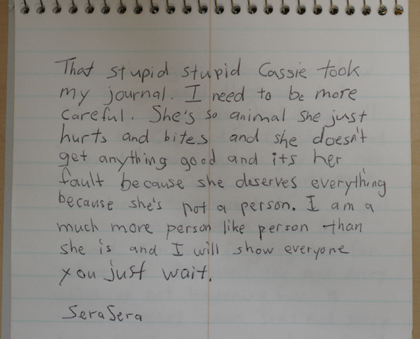 That stupid stupid Cassie took
my journal. I need to be more
careful. She's so animal she just
hurts and bites and she doesn't
get anything good and its her
fault because she deserves everything
because she's not a person. I am a
much more person like person than
she is and I will show everyone
you just wait.
SeraSera